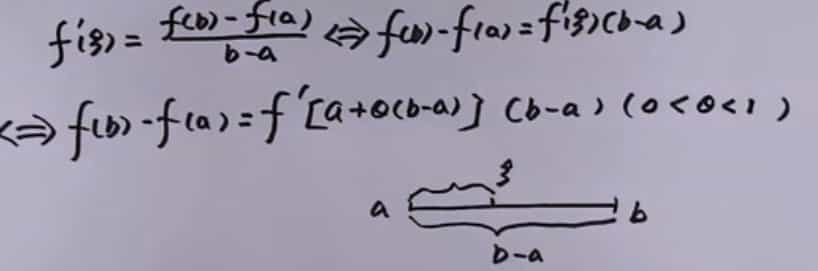 f'(ξ) = \frac{f(b)-f(a)}{b-a} ⇔ f(b)-f(a) = f'(ξ)(b-a)
⇔ f(b)-f(a) = f'[a+θ(b-a)] (b-a) (0<θ<1)
ξ
a b
b-a